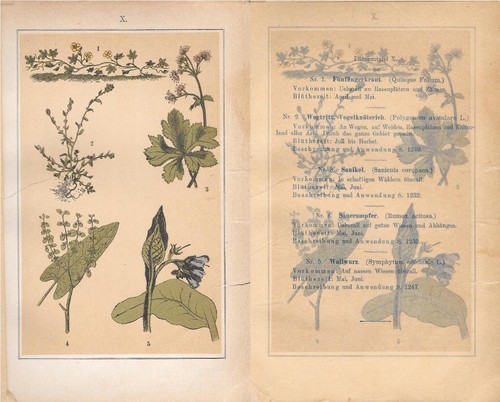 X.
1
2
3
4
5
X.
Pflanzentafel X.
Nr. 1. Fünffingerkraut. (Quinque Folium.)
Vorkommen: Ueberall an Rasenplätzen und Zäunen.
Blüthezeit: April und Mai.
Nr. 2. Wegtritt, Vogelknöterich. (Polygonum aviculare L.)
Vorkommen: An Wegen, auf Weiden, Rasenplätzen und
land aller Art. Durch das ganze Gebiet gemein.
Blüthezeit: Juli bis Herbst.
Beschreibung und Anwendung S. 1249.
Nr. 3. Sanikel. (Sanicula europaea.)
Vorkommen: In schattigen Wäldern überall.
Blüthezeit: Mai, Juni.
Beschreibung und Anwendung S. 1232.
Nr. 4. Sauerampfer. (Rumex acetosa.)
Vorkommen: Ueberall auf guten Wiesen und Abhängen.
Blüthezeit: Mai, Juni.
Beschreibung und Anwendung S.
Nr. 5. Wallwurz. (Symphytum officinale L.)
Vorkommen: Auf nassen Wiesen überall.
Blüthezeit: Mai, Juni.
Beschreibung und Anwendung S. 1247.
3
4
5